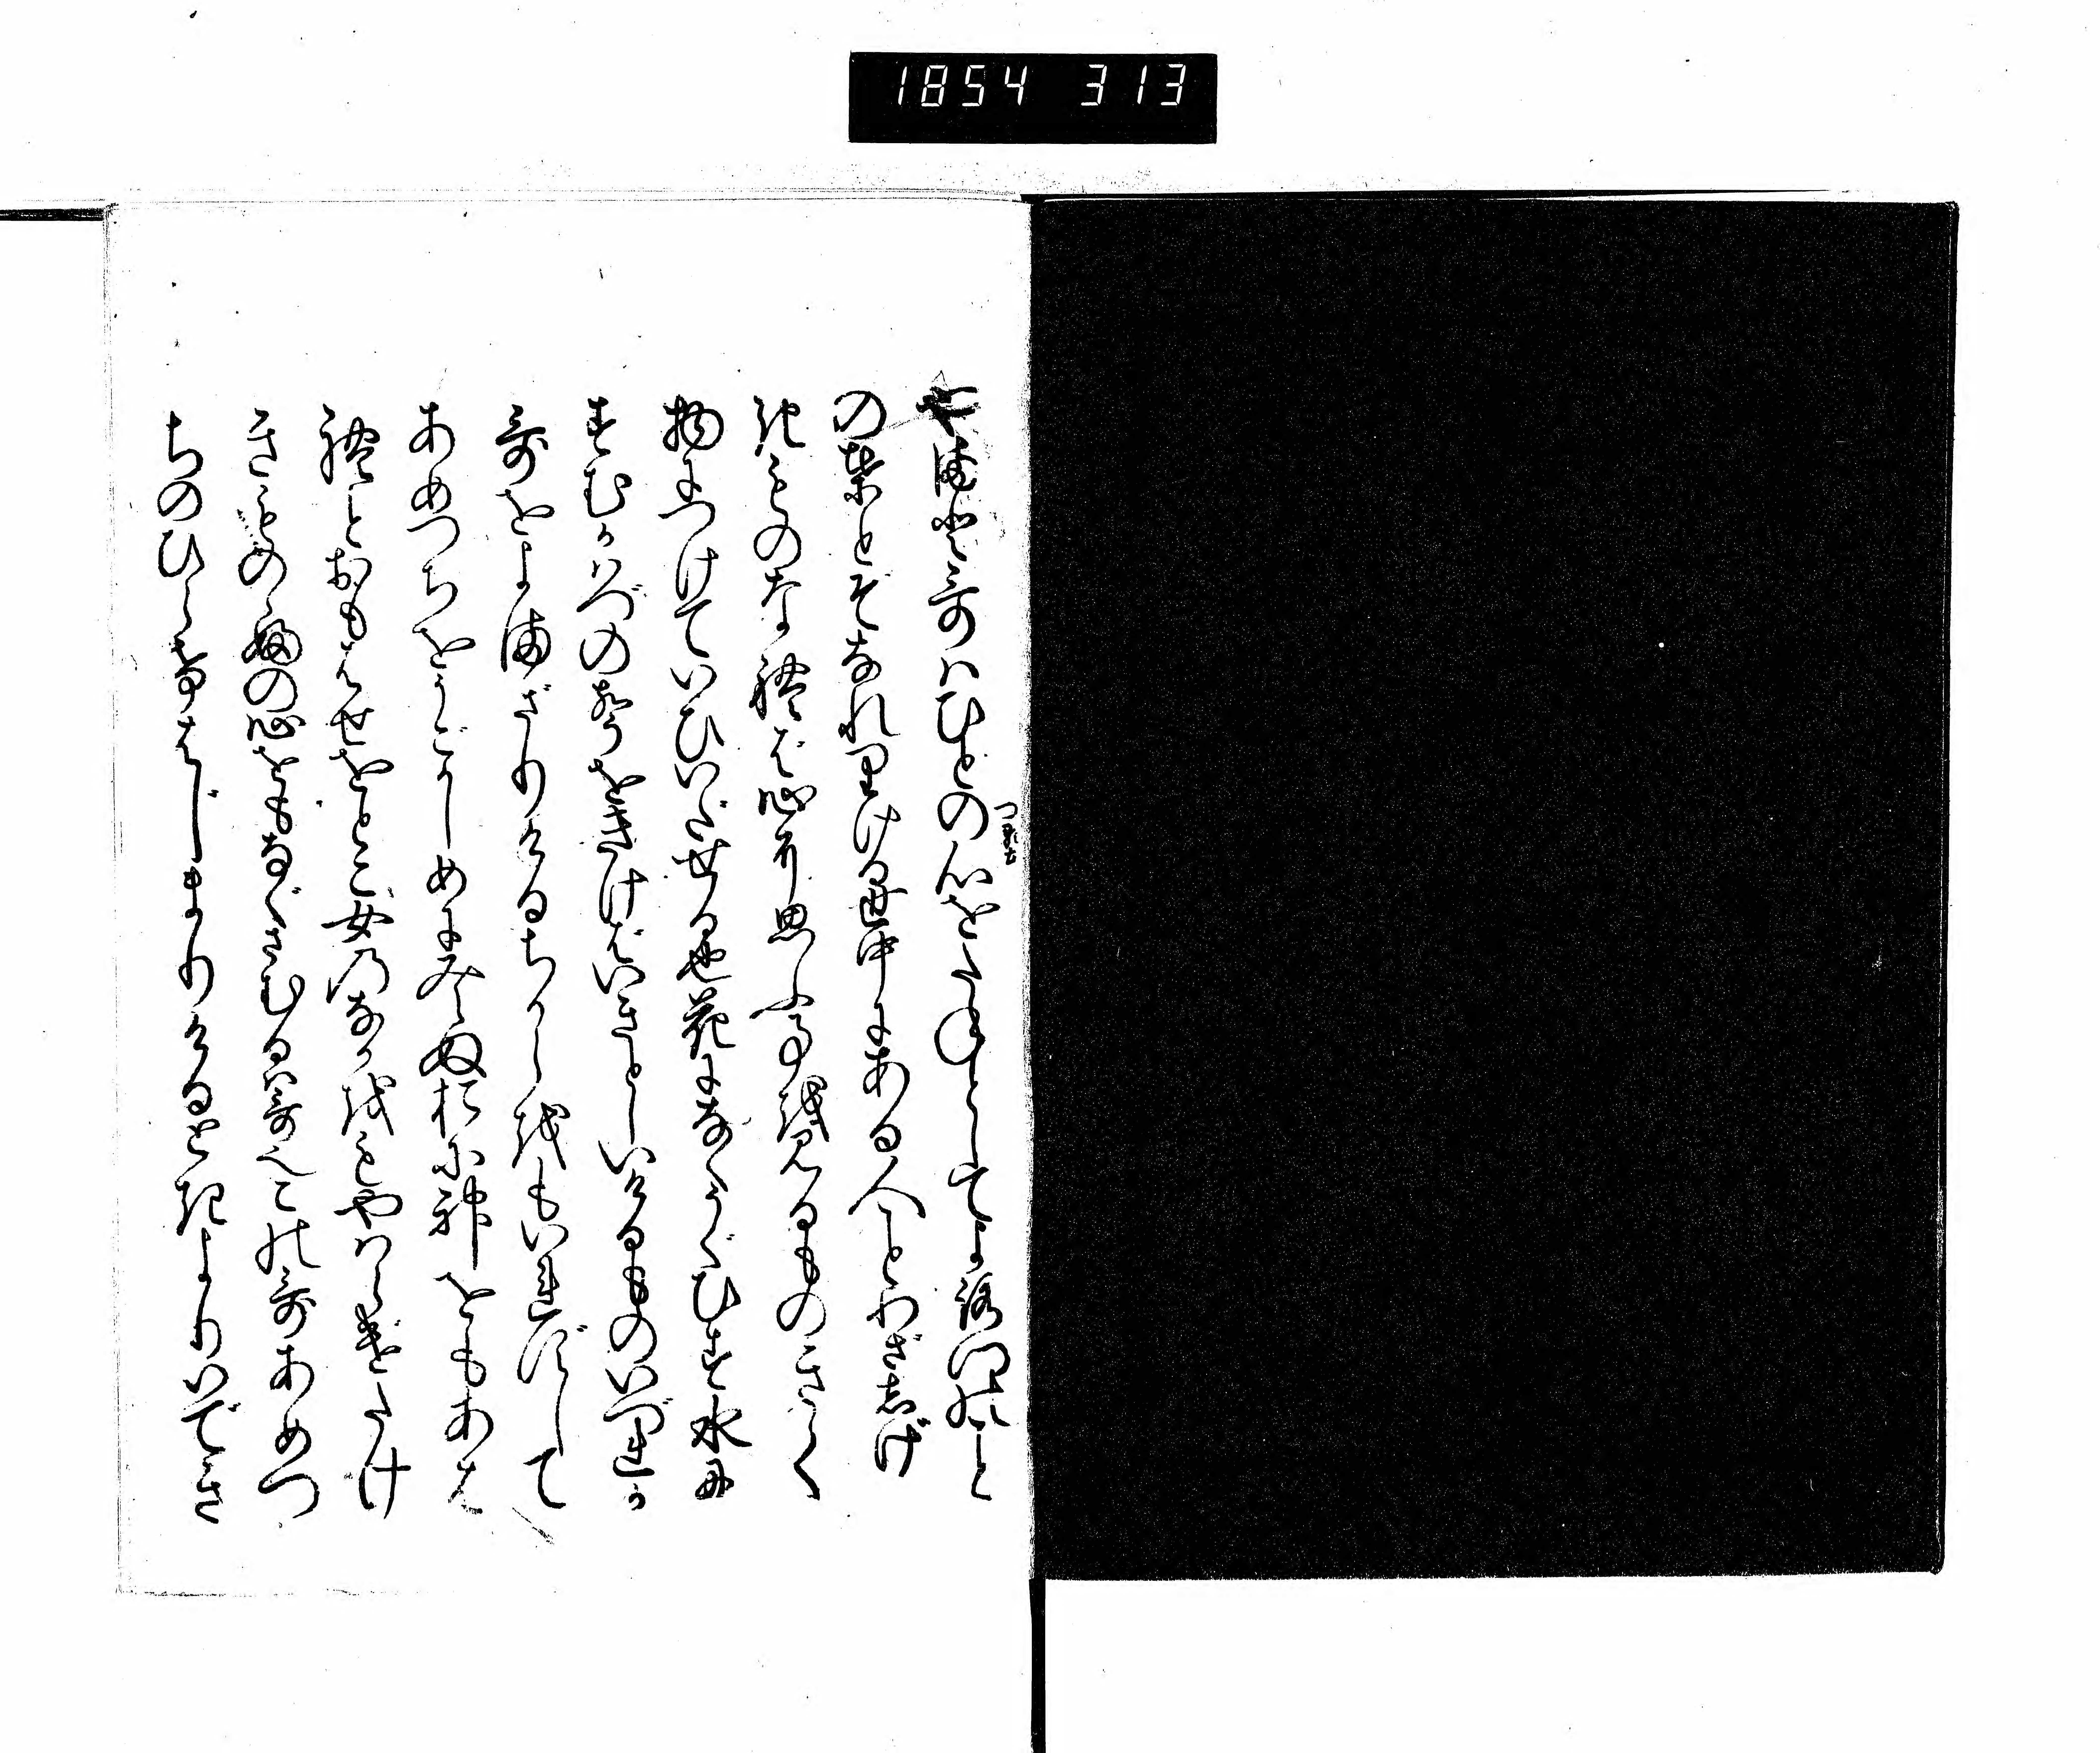 1854 313
やまと哥ハひとの心をたねとしてよろづのこと
つらゆき
の葉とぞなれりける世中にある人ことわざしげ
きものなれば心に思ふ事を見るものきく
物につけていひいだせる也花になくうぐひす水に
すむかハづの声をきけばいきとしいけるものいづれか
哥をよまざりけるちからをもいれずして
あめつちをうごかしめに見えぬおに神をもあは
れとおもはせをとこ女のなかをもやハらげたけ
きものゝふの心をもなぐさむるハ哥也この哥あめつ
ちのひらけはじまりけるときよりいでき